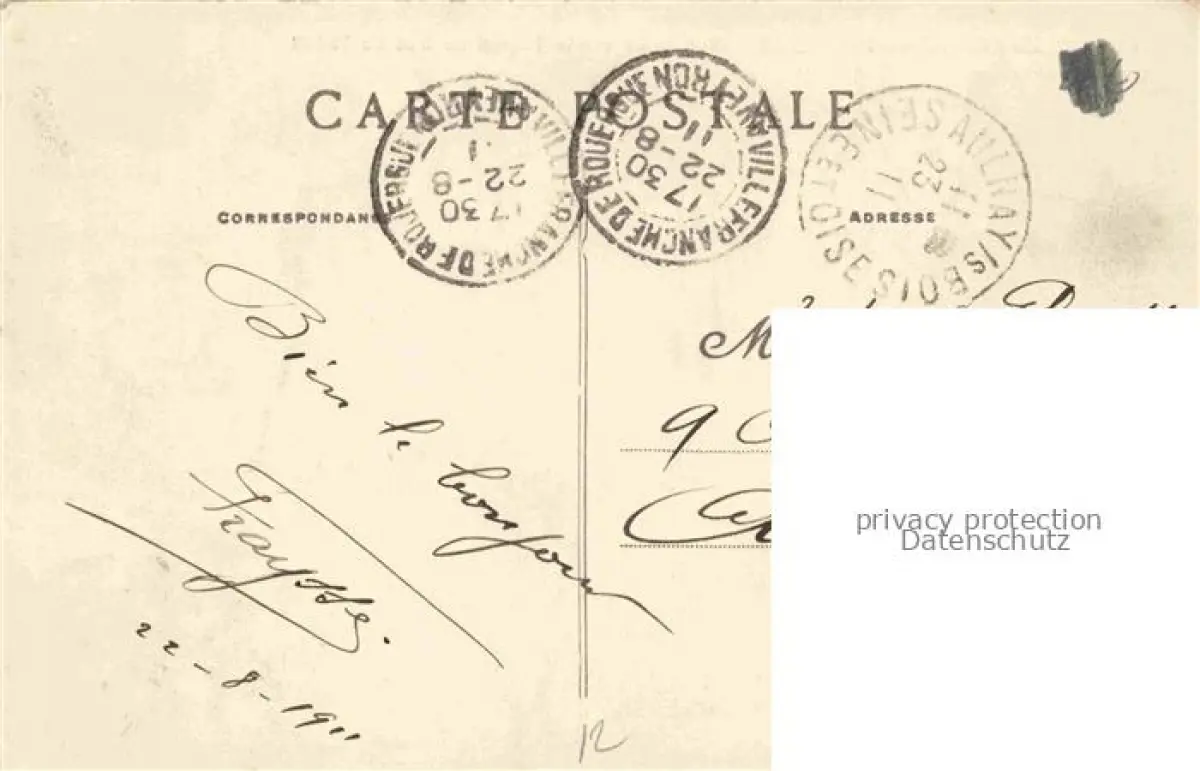 CARTE POSTALE
CORRESPONDANCE
ADRESSE
VILLEFRANCHE DE ROUERGUE AVEYRON
17 30
22 - 8
11
VILLEFRANCHE DE ROUERGUE AVEYRON
17 30
22 - 8
11
AULNAY Is BOIS SEINE ET OISE
23
11
Bien le bonjour
Fraysse.
22 - 8 - 1911
9
12
privacy protection
Datenschutz